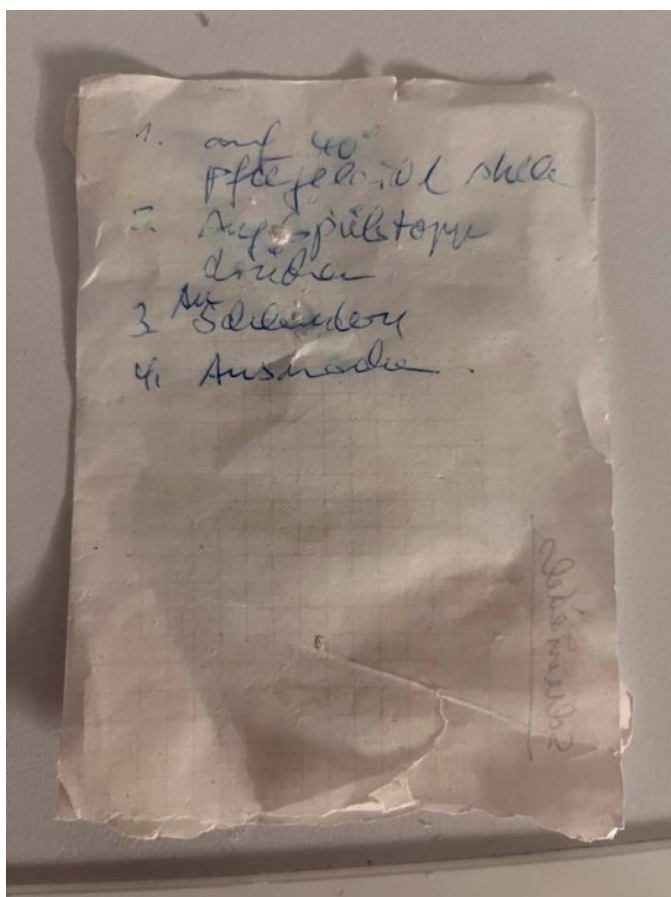 1. auf 40°
pflegeleicht stellen
2. Auf Spülstopp
drücken
3. An Schleudern
4. Ausmachen.